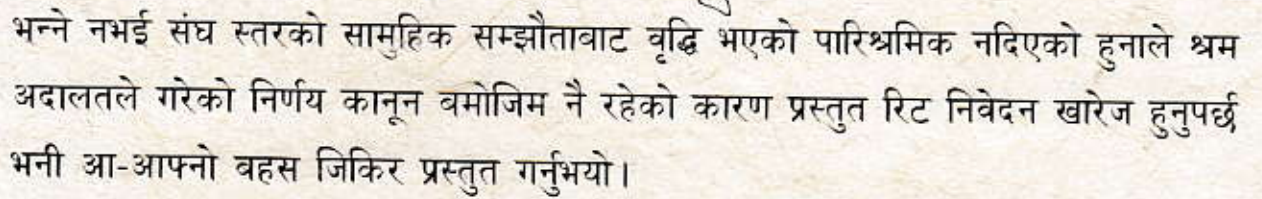 भन्ने नभई संघ स्तरको सामुहिक सम्झौताबाट वृद्धि भएको पारिश्रमिक नदिएको हुनाले श्रम
अदालतले गरेको निर्णय कानून बमोजिम नै रहेको कारण प्रस्तुत रिट निवेदन खारेज हुनुपर्छ
भनी आ-आफ्नो बहस जिकिर प्रस्तुत गर्नुभयो।